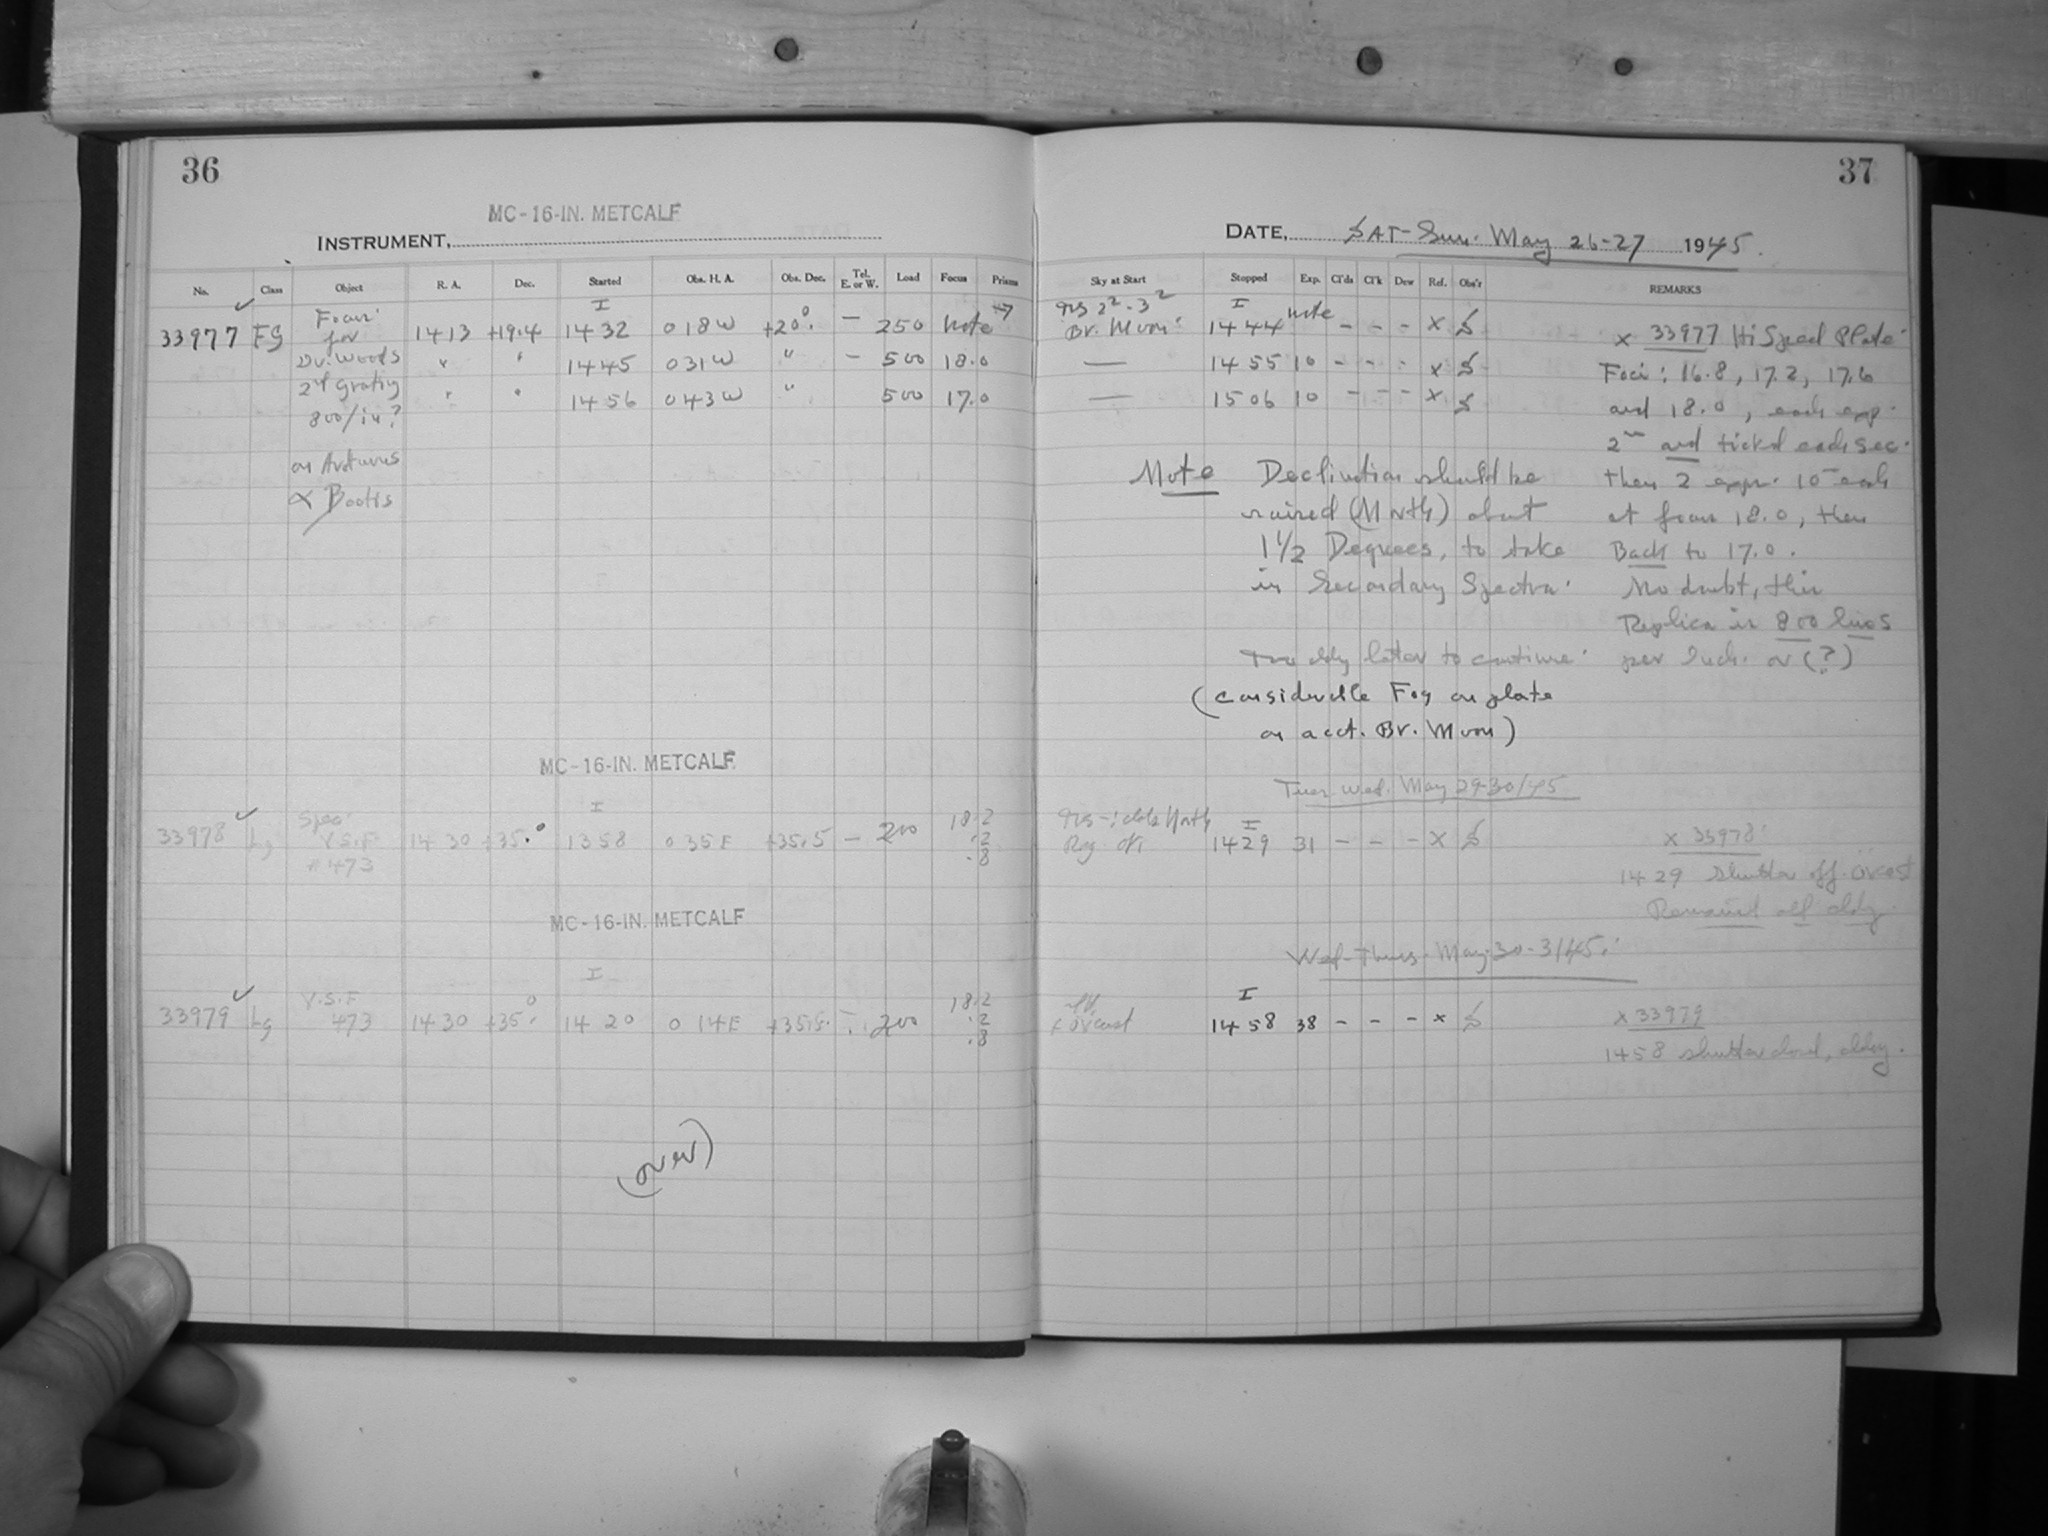 36
MC-16-IN. METCALF
INSTRUMENT,
No. Class Object R. A. Dec. Started Obs. H. A. Obs. Dec. Tel. E. or W. Load Focus Prisms
I
33977 FS Focus for 14 13 +19.4 14 32 0 18 W +20°. — 250 note
Dr. Woods " " 14 45 0 31 W " — 500 18.0
2nd Grating " " 14 56 0 43 W " 500 17.0
800/in?
on Arcturus
α Bootis
MC-16-IN. METCALF
I
33978 Lg Spec. V.S.F #473 14 30 +35.° 13 58 0 35 E +35.5 — 200 18.2 .2 .8
MC-16-IN. METCALF
I
33979 Lg V.S.F 473 14 30 +35° 14 20 0 14 E +35.5 — 200 18.2 .2 .8
(over)
37
DATE, SAT-Sun. May 26-27 1945.
Sky at Start Stopped Exp. Cl'ds Cl'k Dew Ref. Obs'r REMARKS
I note
Br. Moon 14 44 - - - x S
— 14 55 10 - - - x S
— 15 06 10 - - - x S
x 33977 Hi Speed Plate
Foci: 16.8, 17.2, 17.6
and 18.0, each exp.
2m and tick'd each sec.
then 2 exps. 10m each
at focus 18.0, then
Back to 17.0.
No doubt, this
Replica is 800 lines
per Inch. or (?)
Note Declination should be
raised (North) about
1 1/2 Degrees, to take
in Secondary Spectra.
Too cldy later to continue.
(considerable Fog on plate
on acct. Br. Moon)
Tues-Wed. May 29-30/45
I
14 29 31 - - - x S
x 33978
14 29 shutter off. ovcast
Remained all cldy.
Wed-Thurs. May 30-31/45.
I
ovcast 14 58 38 - - - x S
x 33979
1458 shutter closed, cldy.